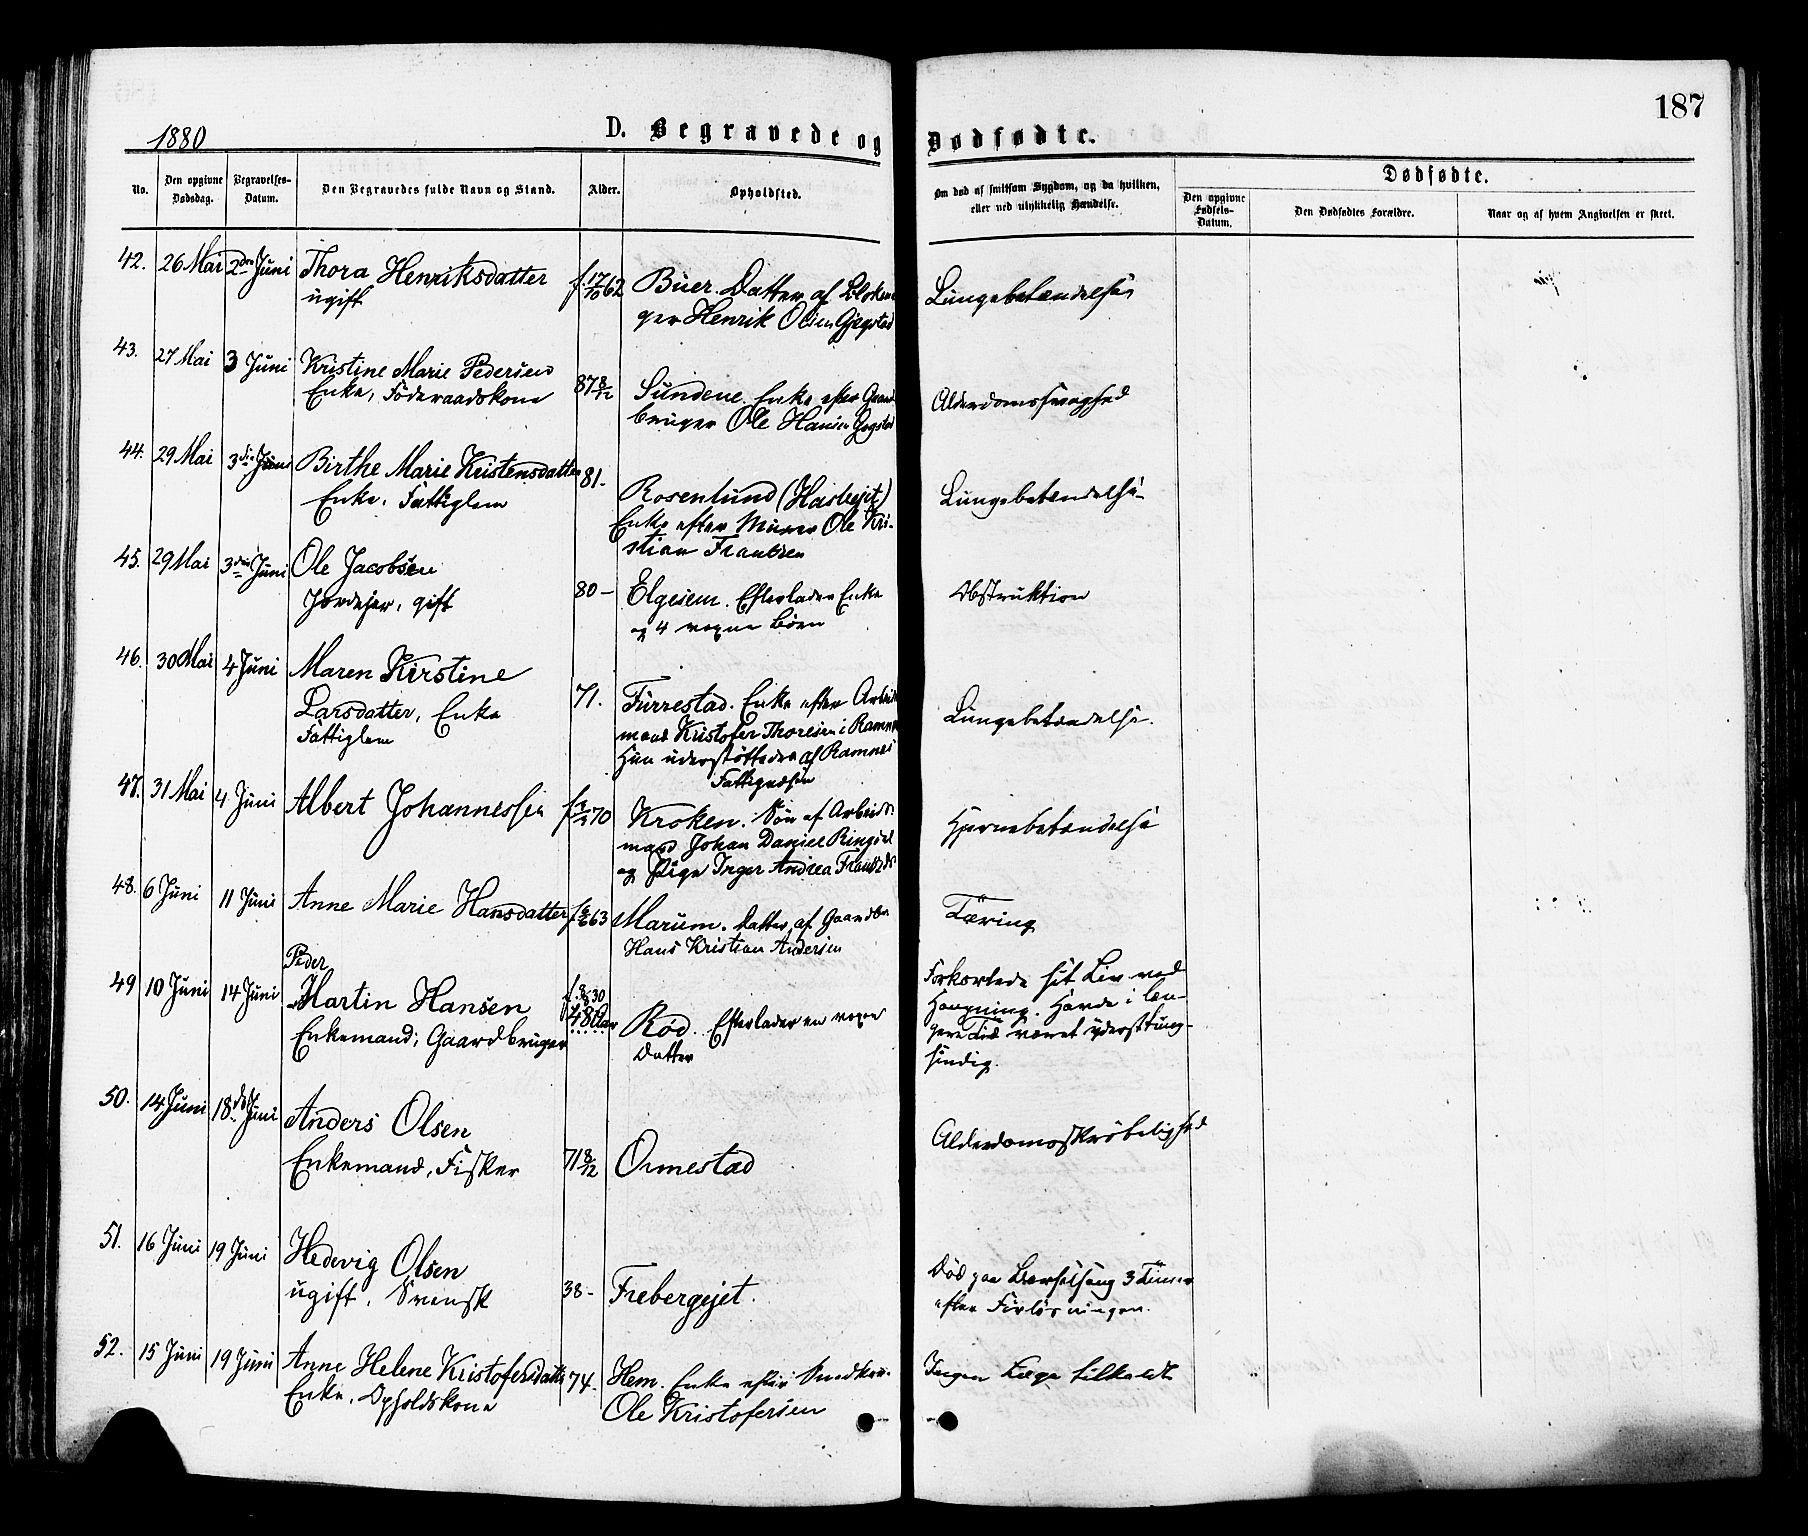 187
1880
D. Begravede og Dødfødte.
No.
Den opgivne Dødsdag.
Begravelses-Datum.
Den Begravedes fulde Navn og Stand.
Alder.
Opholdsted.
Om død af smitsom Sygdom, og da hvilken,
eller ved ulykkelig Hændelse.
Dødfødte.
Den opgivne Fødsels-Datum.
Den Dødfødtes Forældre.
Naar og af hvem Angivelsen er skeet.
42. 26 Mai 2den Juni Thora Henriksdatter
ugift
f. 17/10 62
Buer. Datter af
ger Henrik Olsen Gjegstad
Lungebetændelse
43. 27 Mai 3 Juni Kristine Marie Pedersen
Enke, Föderaadskone
87 8/12
Sundene. Enke efter Gaard
bruger Ole Hansen Gogstad
Alderdomssvaghed
44. 29 Mai 3die Juni Birthe Marie Kristensdatter
Enke. Fattiglem
81-
Rosenlund
Enke efter Murer Ole Kri-
stian Frantzen
Lungebetændelse
45. 29 Mai 3die Juni Ole Jacobsen
Jordejer, gift
80-
Elgesem. Efterlader Enke
og 4 voxne Børn
Obstruktion
46. 30 Mai 4 Juni Maren Kirstine
Larsdatter, Enke
Fattiglem
71.
Furrestad. Enke efter Arbeids
mand Kristofer Thoresen i Ramnes
Hun understøttedes af Ramnes
Fattigvæsen
Lungebetændelse.
47. 31 Mai 4 Juni Albert Johannessen
70
Kroken. Søn af Arbeids
mand Johan Daniel Ringdal
og Pige Inger Andrea Frantzdr
Hjernebetændelse
48. 6 Juni 11 Juni Anne Marie Hansdatter
63
Marum. Datter af Gaardbr
Hans Kristian Andersen
Tæring
49 10 Juni 14 Juni Peder
Martin Hansen
Enkemand, Gaardbruger
30
48 Aar
Rød. Efterlader en voxen
Datter
Forkortede sit Liv ved
Hængning. Havde i læn-
gere Tid været yderst tung-
sindig.
50. 14 Juni 18de Juni Anders Olsen
Enkemand, Fisker
71 8/12
Ormestad
Alderdomsskrøbelighed
51. 16 Juni 19 Juni Hedevig Olsen
ugift, Svensk
38-
Frebergejet.
Død paa Barselseng 3 Timer
efter Forløsningen.
52. 15 Juni 19 Juni Anne Helene Kristofersdatter
Enke, Opholdskone
74-
Hem. Enke efter
Ole Kristofersen
Ingen Læge tilkaldt